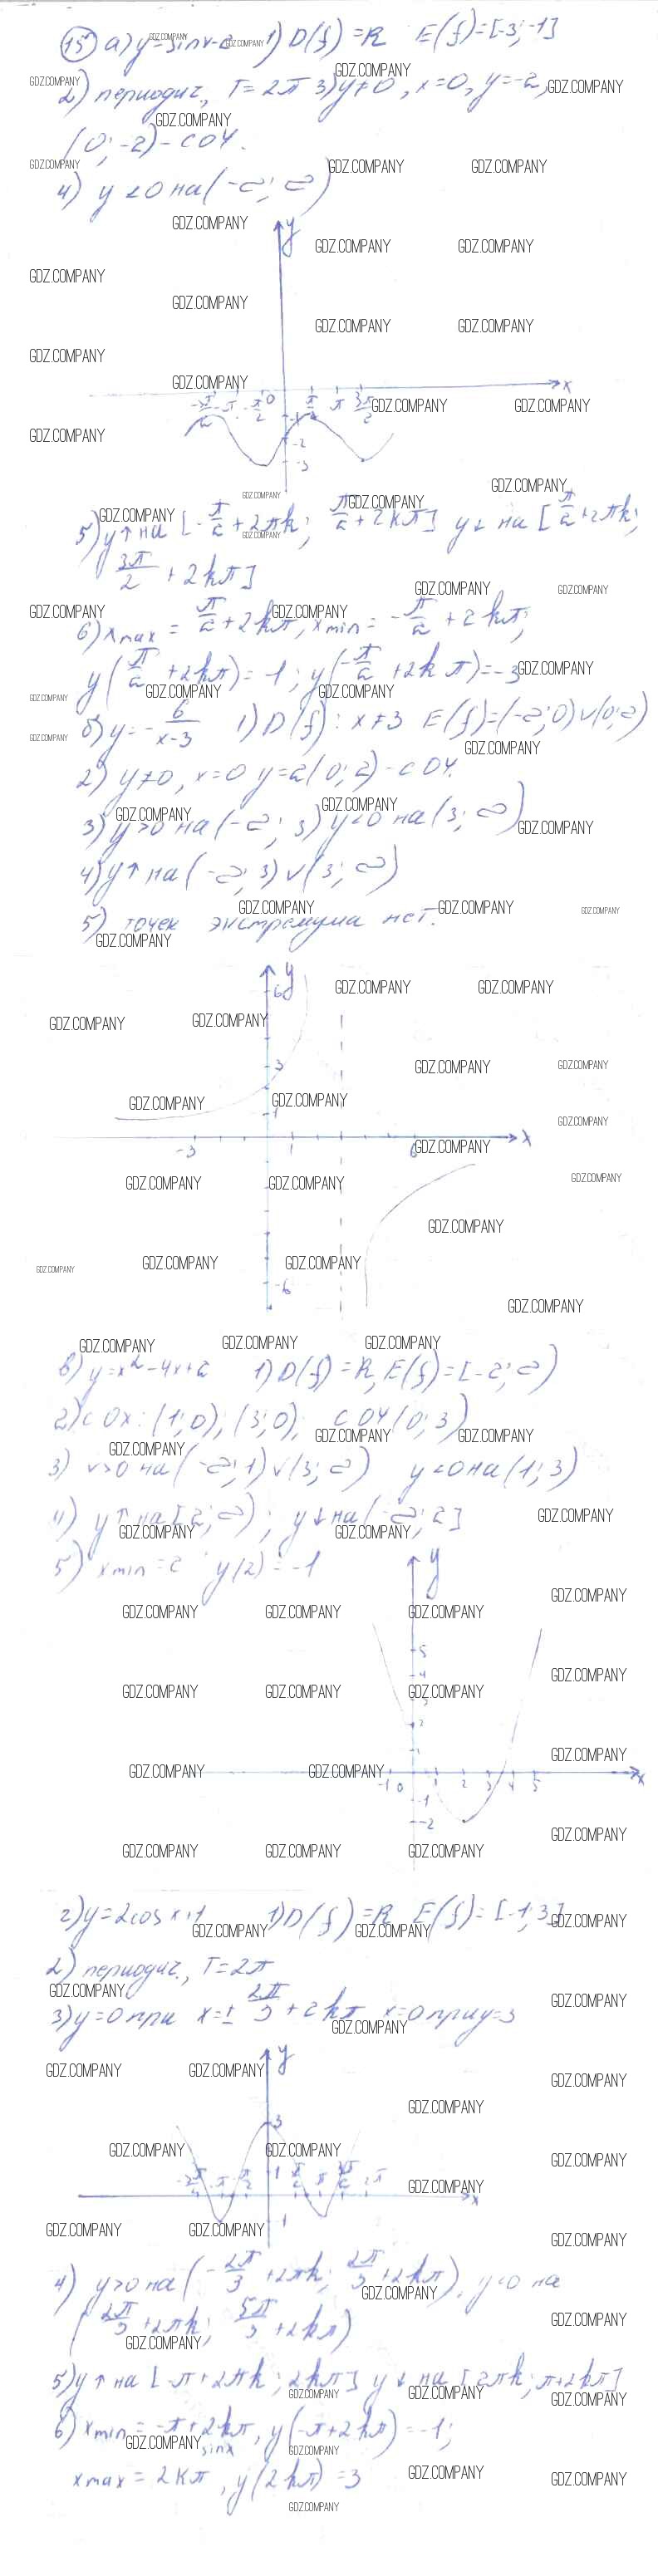 15 а) y=sinx-2 1) D(f)=R E(f)=[-3;-1]
2) периодич, T=2π 3) y≠0, x=0, y=-2,
(0;-2)-с OY.
4) y<0 на (-∞;∞)
y
x
-3π/2 -π -π/2 0 π/2 π 3π/2
-1
-2
-3
5) y↑ на [-π/2+2πk; π/2+2kπ] y↓ на [π/2+2πk;
3π/2+2kπ]
6) xmax = π/2+2kπ, xmin = -π/2+2kπ;
y(π/2+2kπ)=-1; y(-π/2+2kπ)=-3
б) y=-6/(x-3) 1) D(f): x≠3 E(f)=(-∞;0)∪(0;∞)
2) y≠0, x=0 y=2 (0;2)-с OY.
3) y>0 на (-∞;3) y<0 на (3;∞)
4) y↑ на (-∞;3)∪(3;∞)
5) точек экстремума нет.
y
6
3
1
-3 1 6 x
-6
в) y=x²-4x+2 1) D(f)=R, E(f)=[-2;∞)
2) с OX: (1;0); (3;0); с OY (0;3)
3) y>0 на (-∞;1)∪(3;∞) y<0 на (1;3)
4) y↑ на [2;∞); y↓ на (-∞;2]
5) xmin=2 y(2)=-1
y
5
4
3
2
1
-1 0 1 2 3 4 5 x
-1
-2
г) y=2cosx+1 1) D(f)=R E(f)=[-1;3]
2) периодич., T=2π
3) y=0 при x=± 2π/3+2kπ x=0 при y=3
y
3
1
x
4) y>0 на (-2π/3+2πk; 2π/3+2kπ), y<0 на
(2π/3+2πk; 5π/3+2kπ)
5) y↑ на [-π+2πk; 2kπ] y↓ на [2πk; π+2kπ]
6) xmin=-π+2kπ, y(-π+2kπ)=-1;
sinx
xmax=2kπ, y(2kπ)=3
GDZ.COMPANY